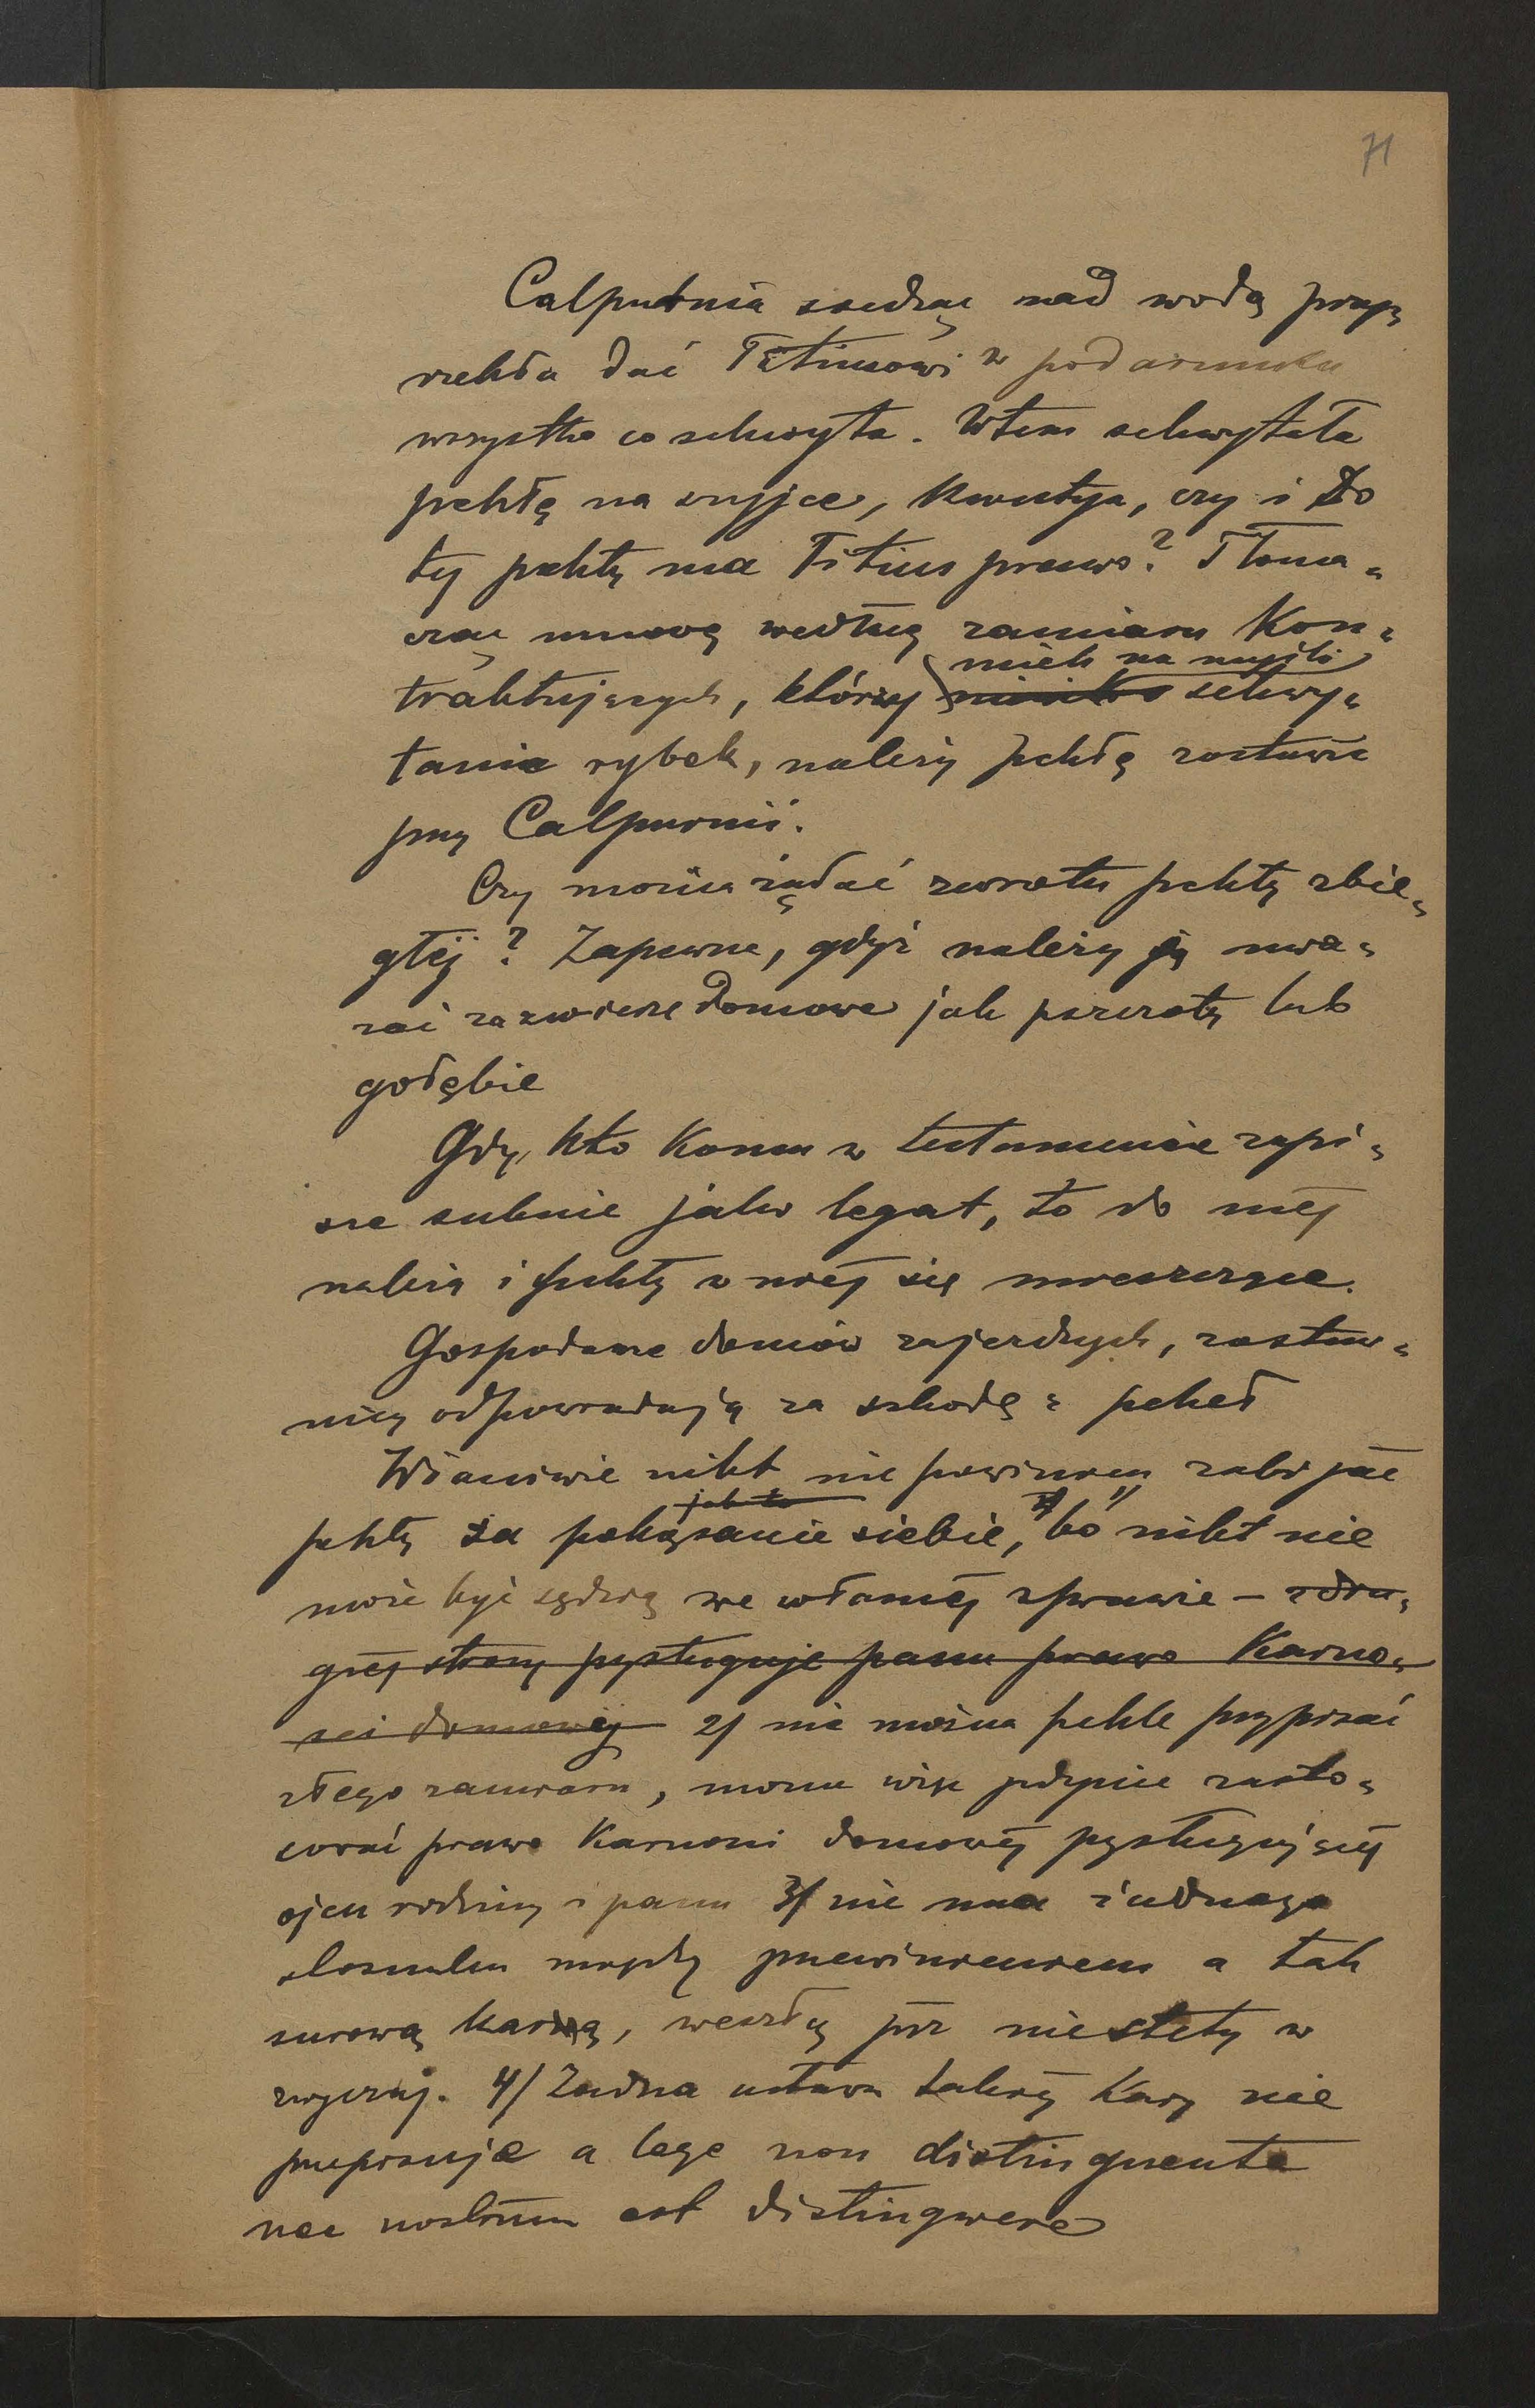 71
Calpurnia siedząc nad wodą przy=
rzekła dać Titiusowi w podarunku
wszystko co schwyta. Wtem schwytała
pchłę na szyjce, kwestya, czy i do
tej pchły ma Titius prawo? Tłoma=
cząc umowę według zamiaru kon=
mieli na myśli
traktujących, którzy schwy=
tanie rybek, należy pchłę zostawić
przy Calpurnii.
Czy można żądać zwrotu pchły zbie=
głej? Zapewne, gdyż należy ją uwa=
żać za zwierzę domowe jak pszczoły lub
gołębie
Gdy kto komu w testamencie zapi=
sze suknie jako legat, to do niej
należą i pchły w niej się mieszczące.
Gospodarze domów zajezdnych, zastaw=
nicy odpowiadają za szkodę z pcheł
Właściwie nikt nie powinien zabijać
jak to
pchły za pokąsanie siebie, 1/ bo nikt nie
może być sędzią we własnej sprawie – z dru=
giej strony przysługuje panu prawo karno=
ści domowej 2/ nie można pchle przypisać
złego zamiaru, można więc jedynie zasto=
sować prawo karności domowej przysługującej
ojcu rodziny i panu 3/ nie ma żadnego
stosunku między przewinieniem a tak
surową karą, weszłą już niestety w
zwyczaj. 4/ Żadna ustawa takiej kary nie
przepisuje a lege non distinguente
nec nostrum est distingwere